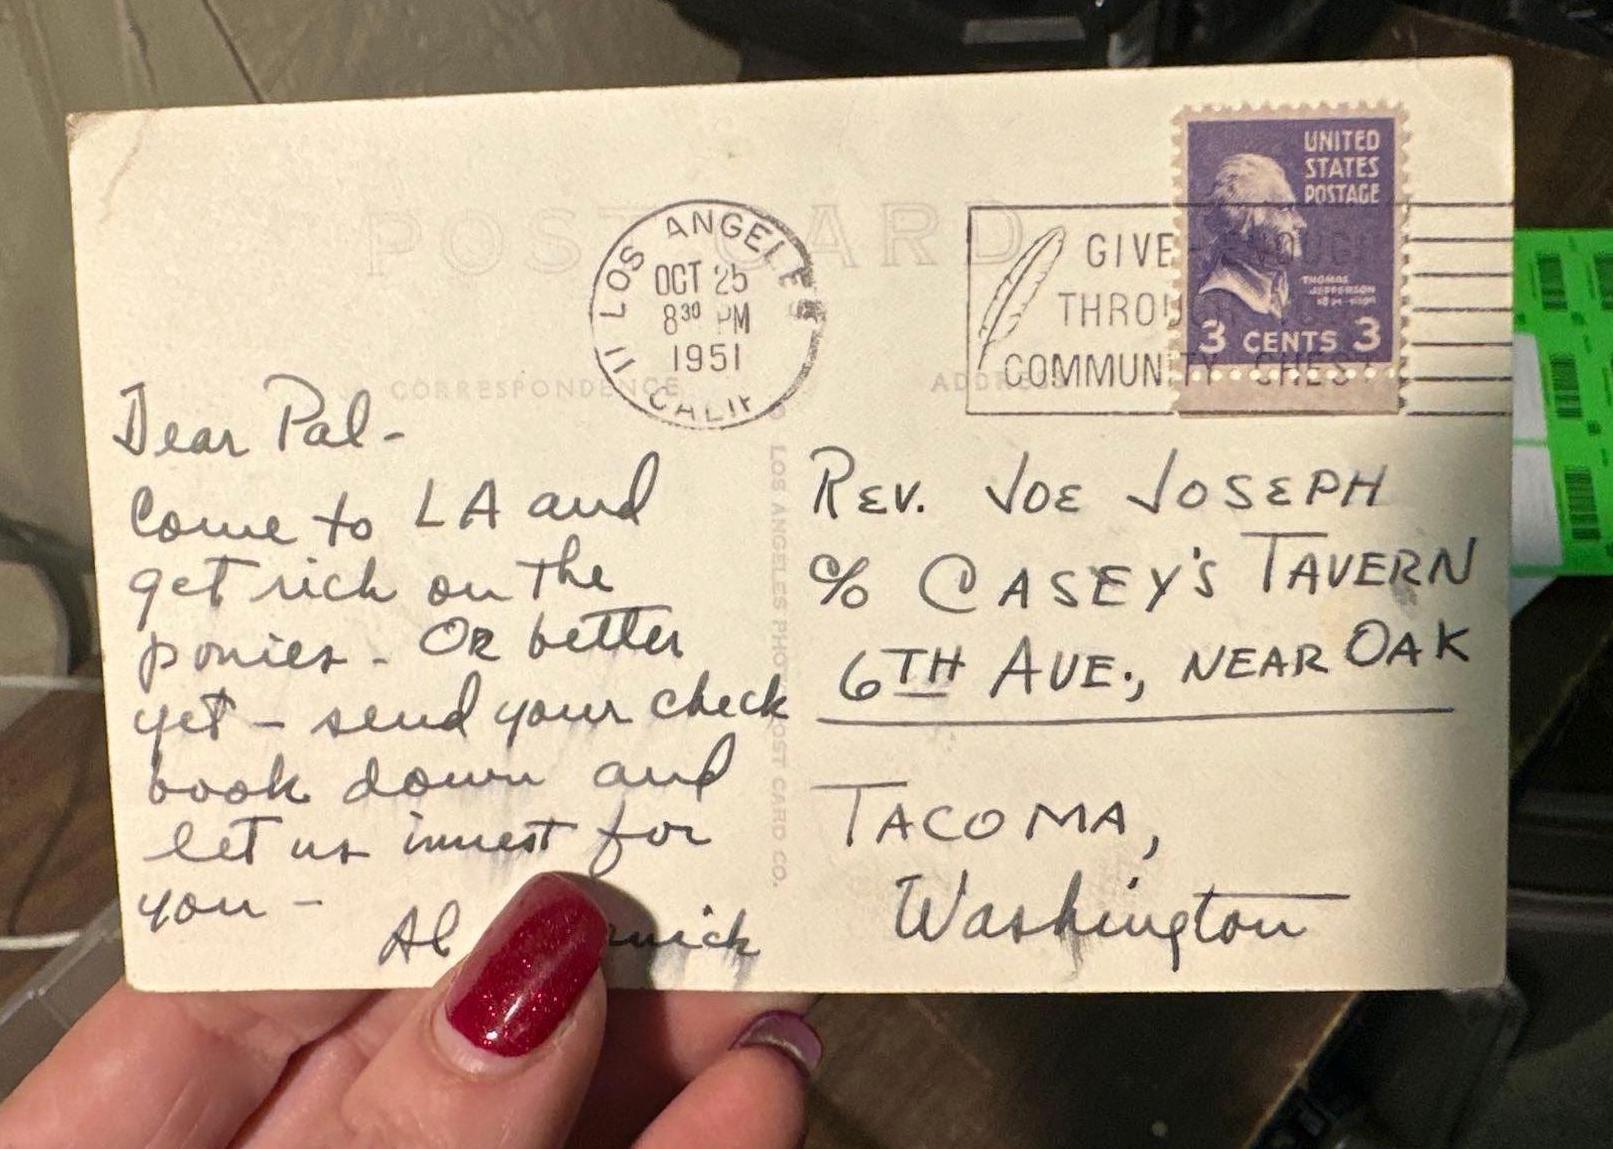 POST CARD
LOS ANGELES
11
CALIF
OCT 25
8³⁰ PM
1951
UNITED
STATES
POSTAGE
THOMAS
JEFFERSON
3 CENTS 3
GIVE ENOUGH
THROUGH
COMMUNITY CHEST
CORRESPONDENCE
ADDRESS
Dear Pal-
Come to LA and
get rich on the
ponies - OR better
yet - send your check
book down and
let us invest for
you -
Al
LOS ANGELES PHOTO POST CARD CO.
REV. JOE JOSEPH
℅ CASEY'S TAVERN
6TH AVE., NEAR OAK
TACOMA,
Washington